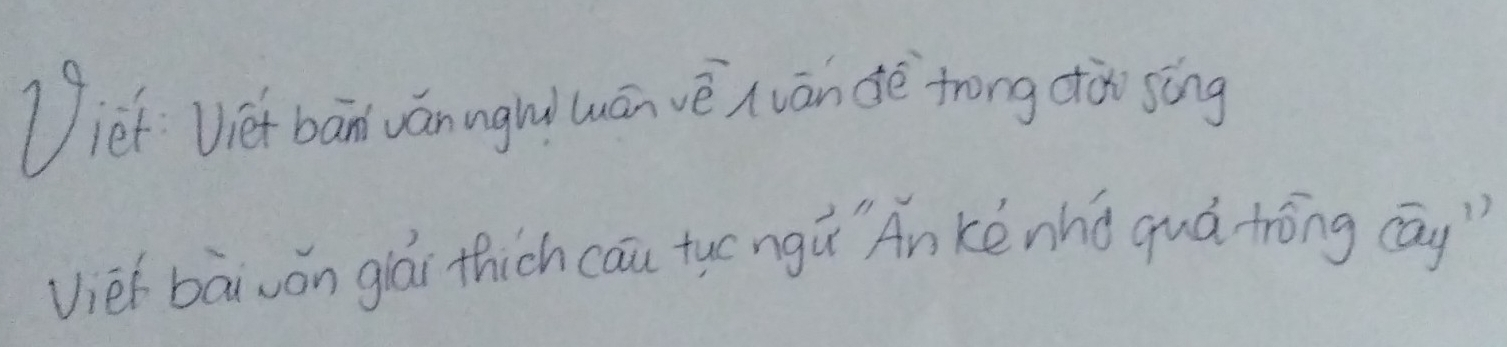 Viết: Viết bản văn nghị luân về 1 vấn đề trong đời sống
Viết bài văn giải thích câu tục ngữ "Ăn kẻ nhớ quả trồng cây"